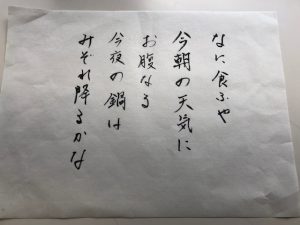 なに食ふや
今朝の天気に
お腹なる
今夜の鍋は
みぞれ降るかな